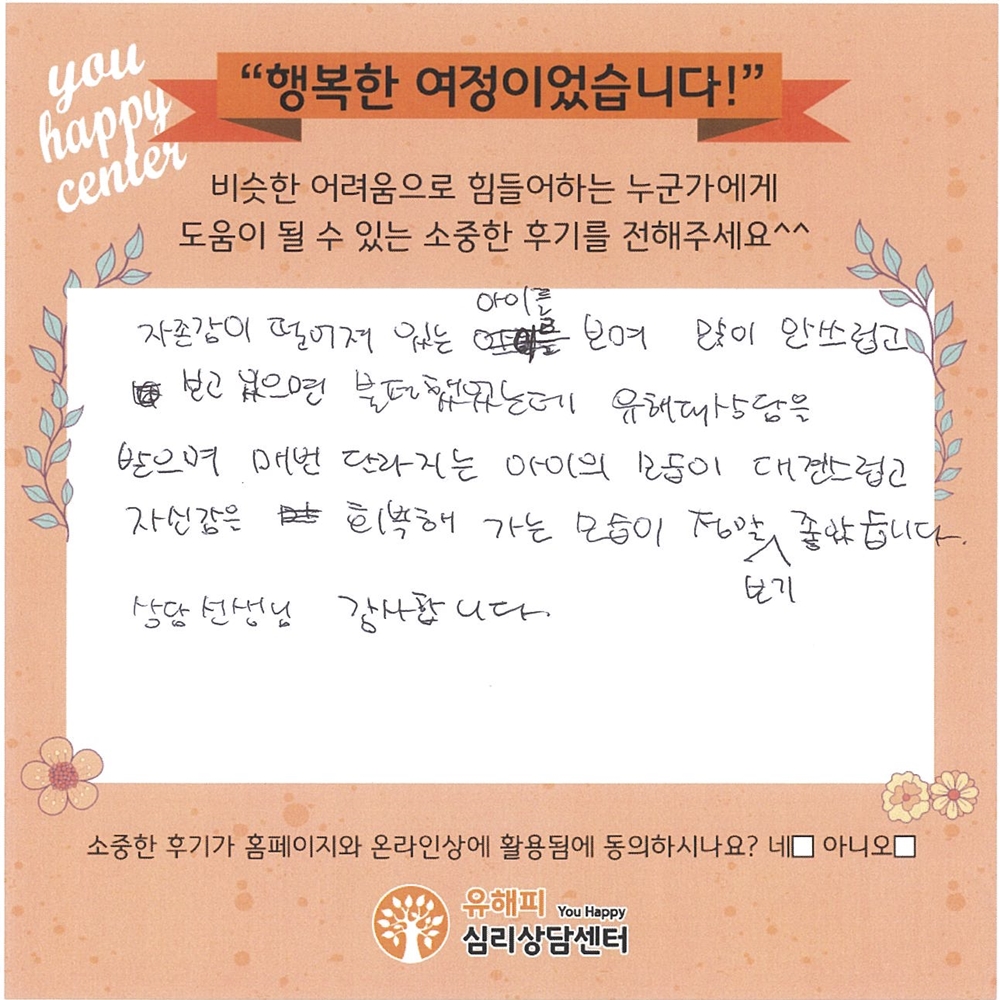 you
happy
center
“행복한 여정이었습니다!”
비슷한 어려움으로 힘들어하는 누군가에게
도움이 될 수 있는 소중한 후기를 전해주세요^^
아이를
자존감이 떨어져 있는 보며 많이 안쓰럽고
보고 있으면 불편했었는데 유해피상담을
받으며 매번 달라지는 아이의 모습이 대견스럽고
자신감은 회복해 가는 모습이 정말 좋았습니다.
보기
상담선생님 감사합니다.
소중한 후기가 홈페이지와 온라인상에 활용됨에 동의하시나요? 네□ 아니오□
유해피 You Happy
심리상담센터